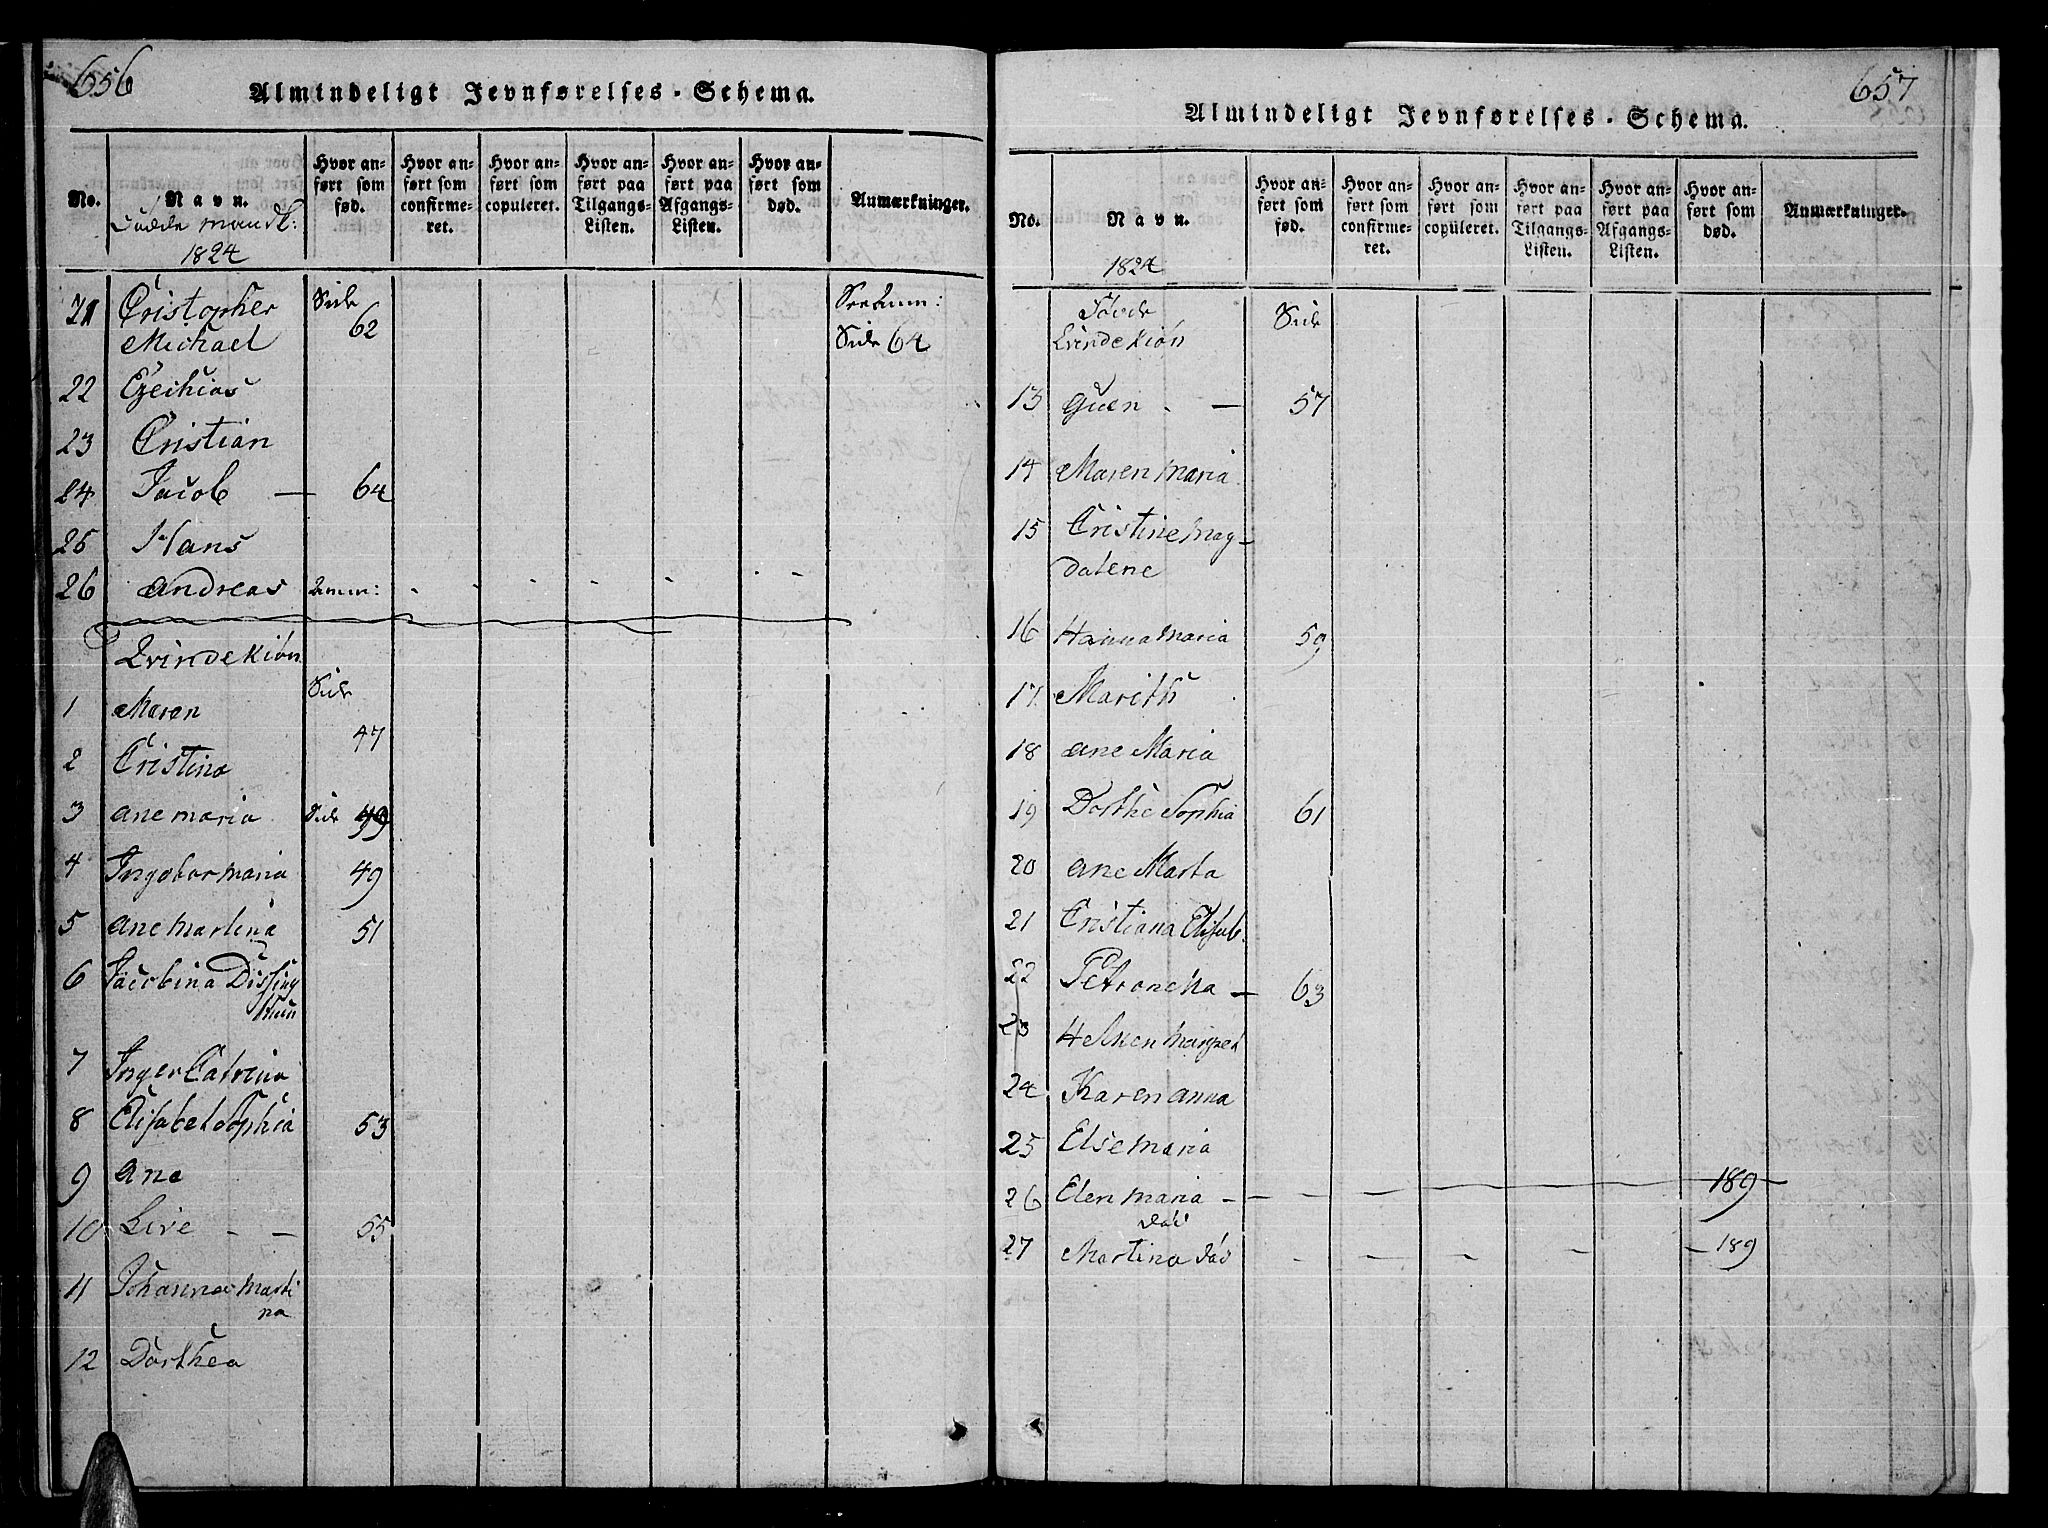 656
Almindeligt Jevnførelses-Schema.
No.
Navn.
mandk:
1824
Hvor anført som fød.
Hvor anført som confirmeret.
Hvor anført som copuleret.
Hvor anført paa Tilgangs-Listen.
Hvor anført paa Afgangs-Listen.
Hvor anført som død.
Anmærkninger.
21 Cristopher Side
Michael 62 Side 64
22 Ezechias
23 Cristian
24 Jacob — 64
25 Hans
26 Andreas
Qvindekiøn
Side
1 Maren
47
2 Cristina
3 Ane maria Side 49
4 Ingebor maria 49
5 Ane Martina 51
6 Jacobina Dissing
7 Inger Catrina
8 Elisabet Sophia 53
9 Ane
10 Live - - 55
11 Johanna Marti
na
12 Dorthea
657
Almindeligt Jevnførelses-Schema.
No.
Navn.
1824
Hvor anført som fød.
Hvor anført som confirmeret.
Hvor anført som copuleret.
Hvor anført paa Tilgangs-Listen.
Hvor anført paa Afgangs-Listen.
Hvor anført som død.
Anmærkninger.
Side
Qvindekiøn
13 Guen - — 57
14 Maren Maria
15 Cristine mag-
dalene
16 Hanna Maria 59
17 Marith
18 Ane Maria
19 Dorthe Sophia 61
20 Ane Marta
21 Cristiana Elisab.
22 Petronelia — 63
23 Margret
24 Karen Anna
25 Else Maria
26 Elen Maria - 189
død
27 Martina død - 189